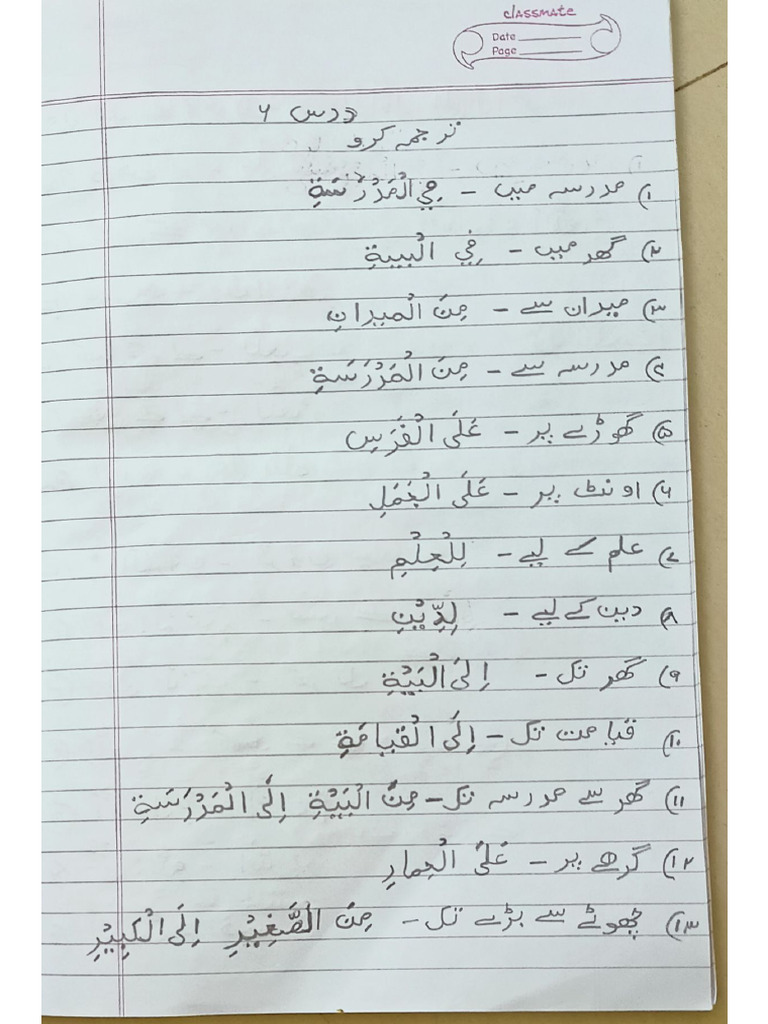 classmate
Date
Page
درس ۶
ترجمہ کرو
۱) مدرسہ میں - فِي الْمَدْرَسَةِ
۲) گھر میں - فِي الْبَيةِ
۳) میدان سے - مِنَ الْمیدانِ
۴) مدرسہ سے - مِنَ الْمَدْرَسَةِ
۵) گھوڑے پر - عَلَى الْفَرَسِ
۶) اونٹ پر - عَلَى الْجَمَلِ
۷) علم کے لیے - لِلْعِلْمِ
۸) دین کے لیے - لِلدِّيْنِ
۹) گھر تک - اِلَى الْبَيْةِ
۱۰) قیامت تک - اِلَى الْقیامَةِ
۱۱) گھر سے مدرسہ تک - مِنَ الْبَيْةِ اِلَى الْمَدْرَسَةِ
۱۲) گدھے پر - عَلَى الْحِمارِ
۱۳) چھوٹے سے بڑے تک - مِنَ الْصَّغِيْرِ اِلَى الْكَبِيْرِ